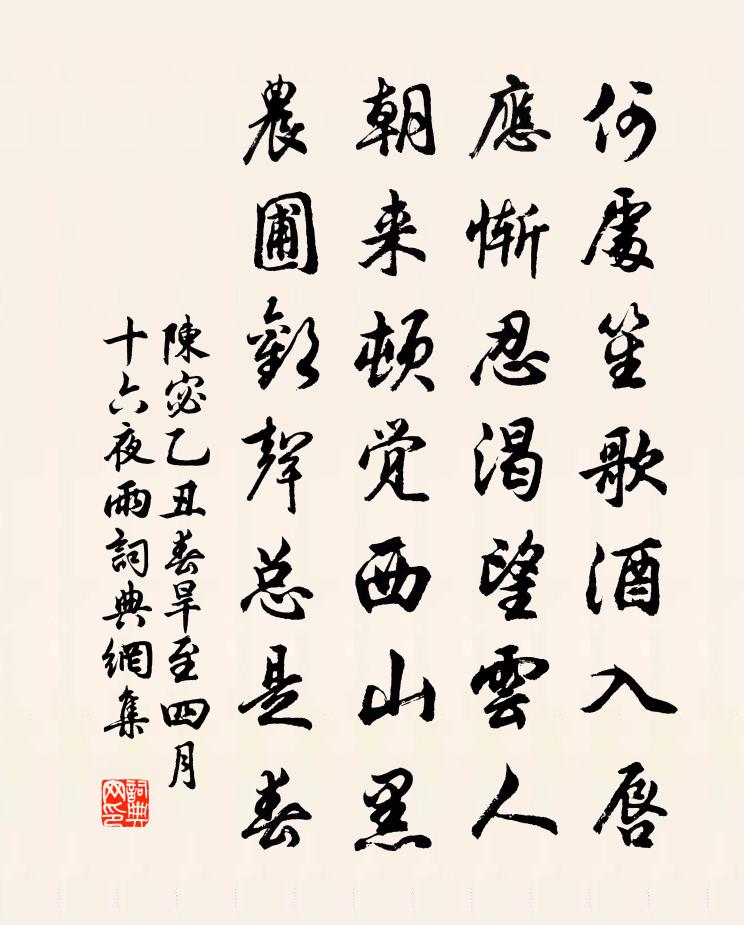 何處笙歌酒入唇
應慚忍渴望雲人
朝来頓覚西山黑
農圃歡聲总是春
陳宓乙丑春旱至四月
十六夜雨詞典網集
詞典网印